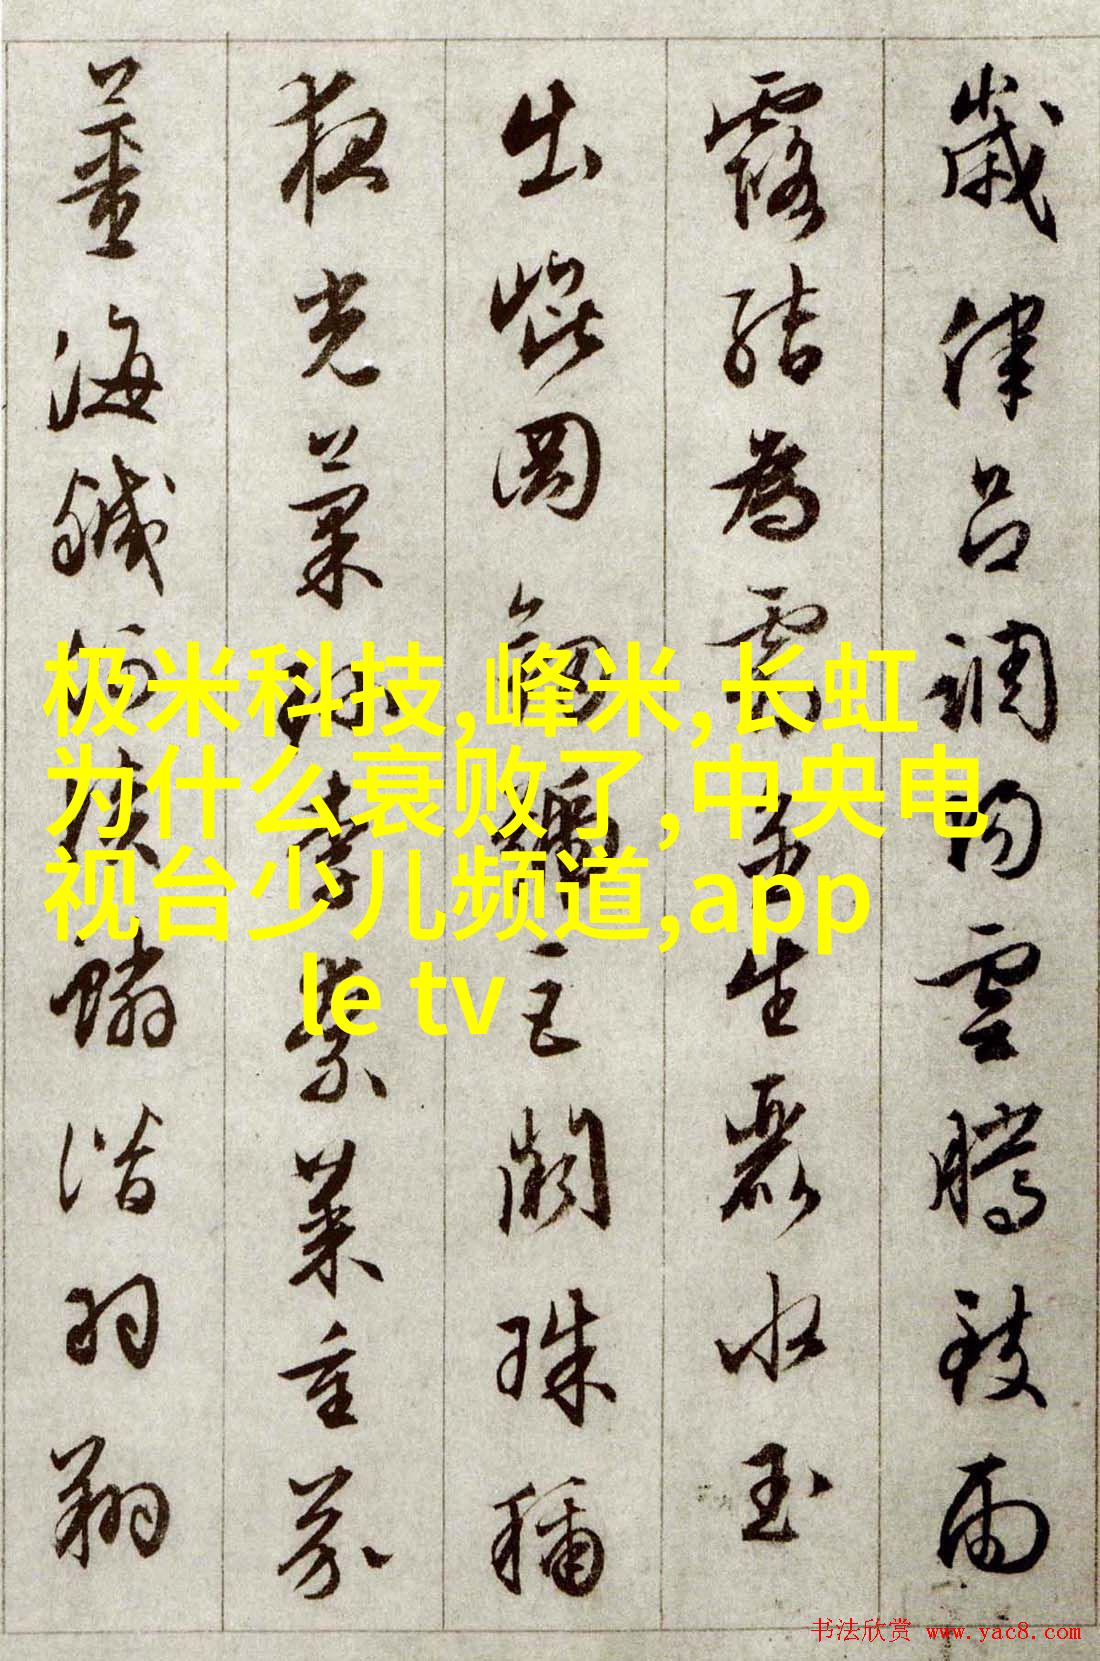 歲律呂調陽雲騰致雨
露結為霜金生麗水玉
出崐岡劍號巨闕珠稱
夜光菓珍李柰菜重芥
薑海鹹河淡鱗潛羽翔
极米科技,峰米,长虹
为什么衰败了,中央电
视台少儿频道,app
le tv
书法欣赏 www.yac8.com